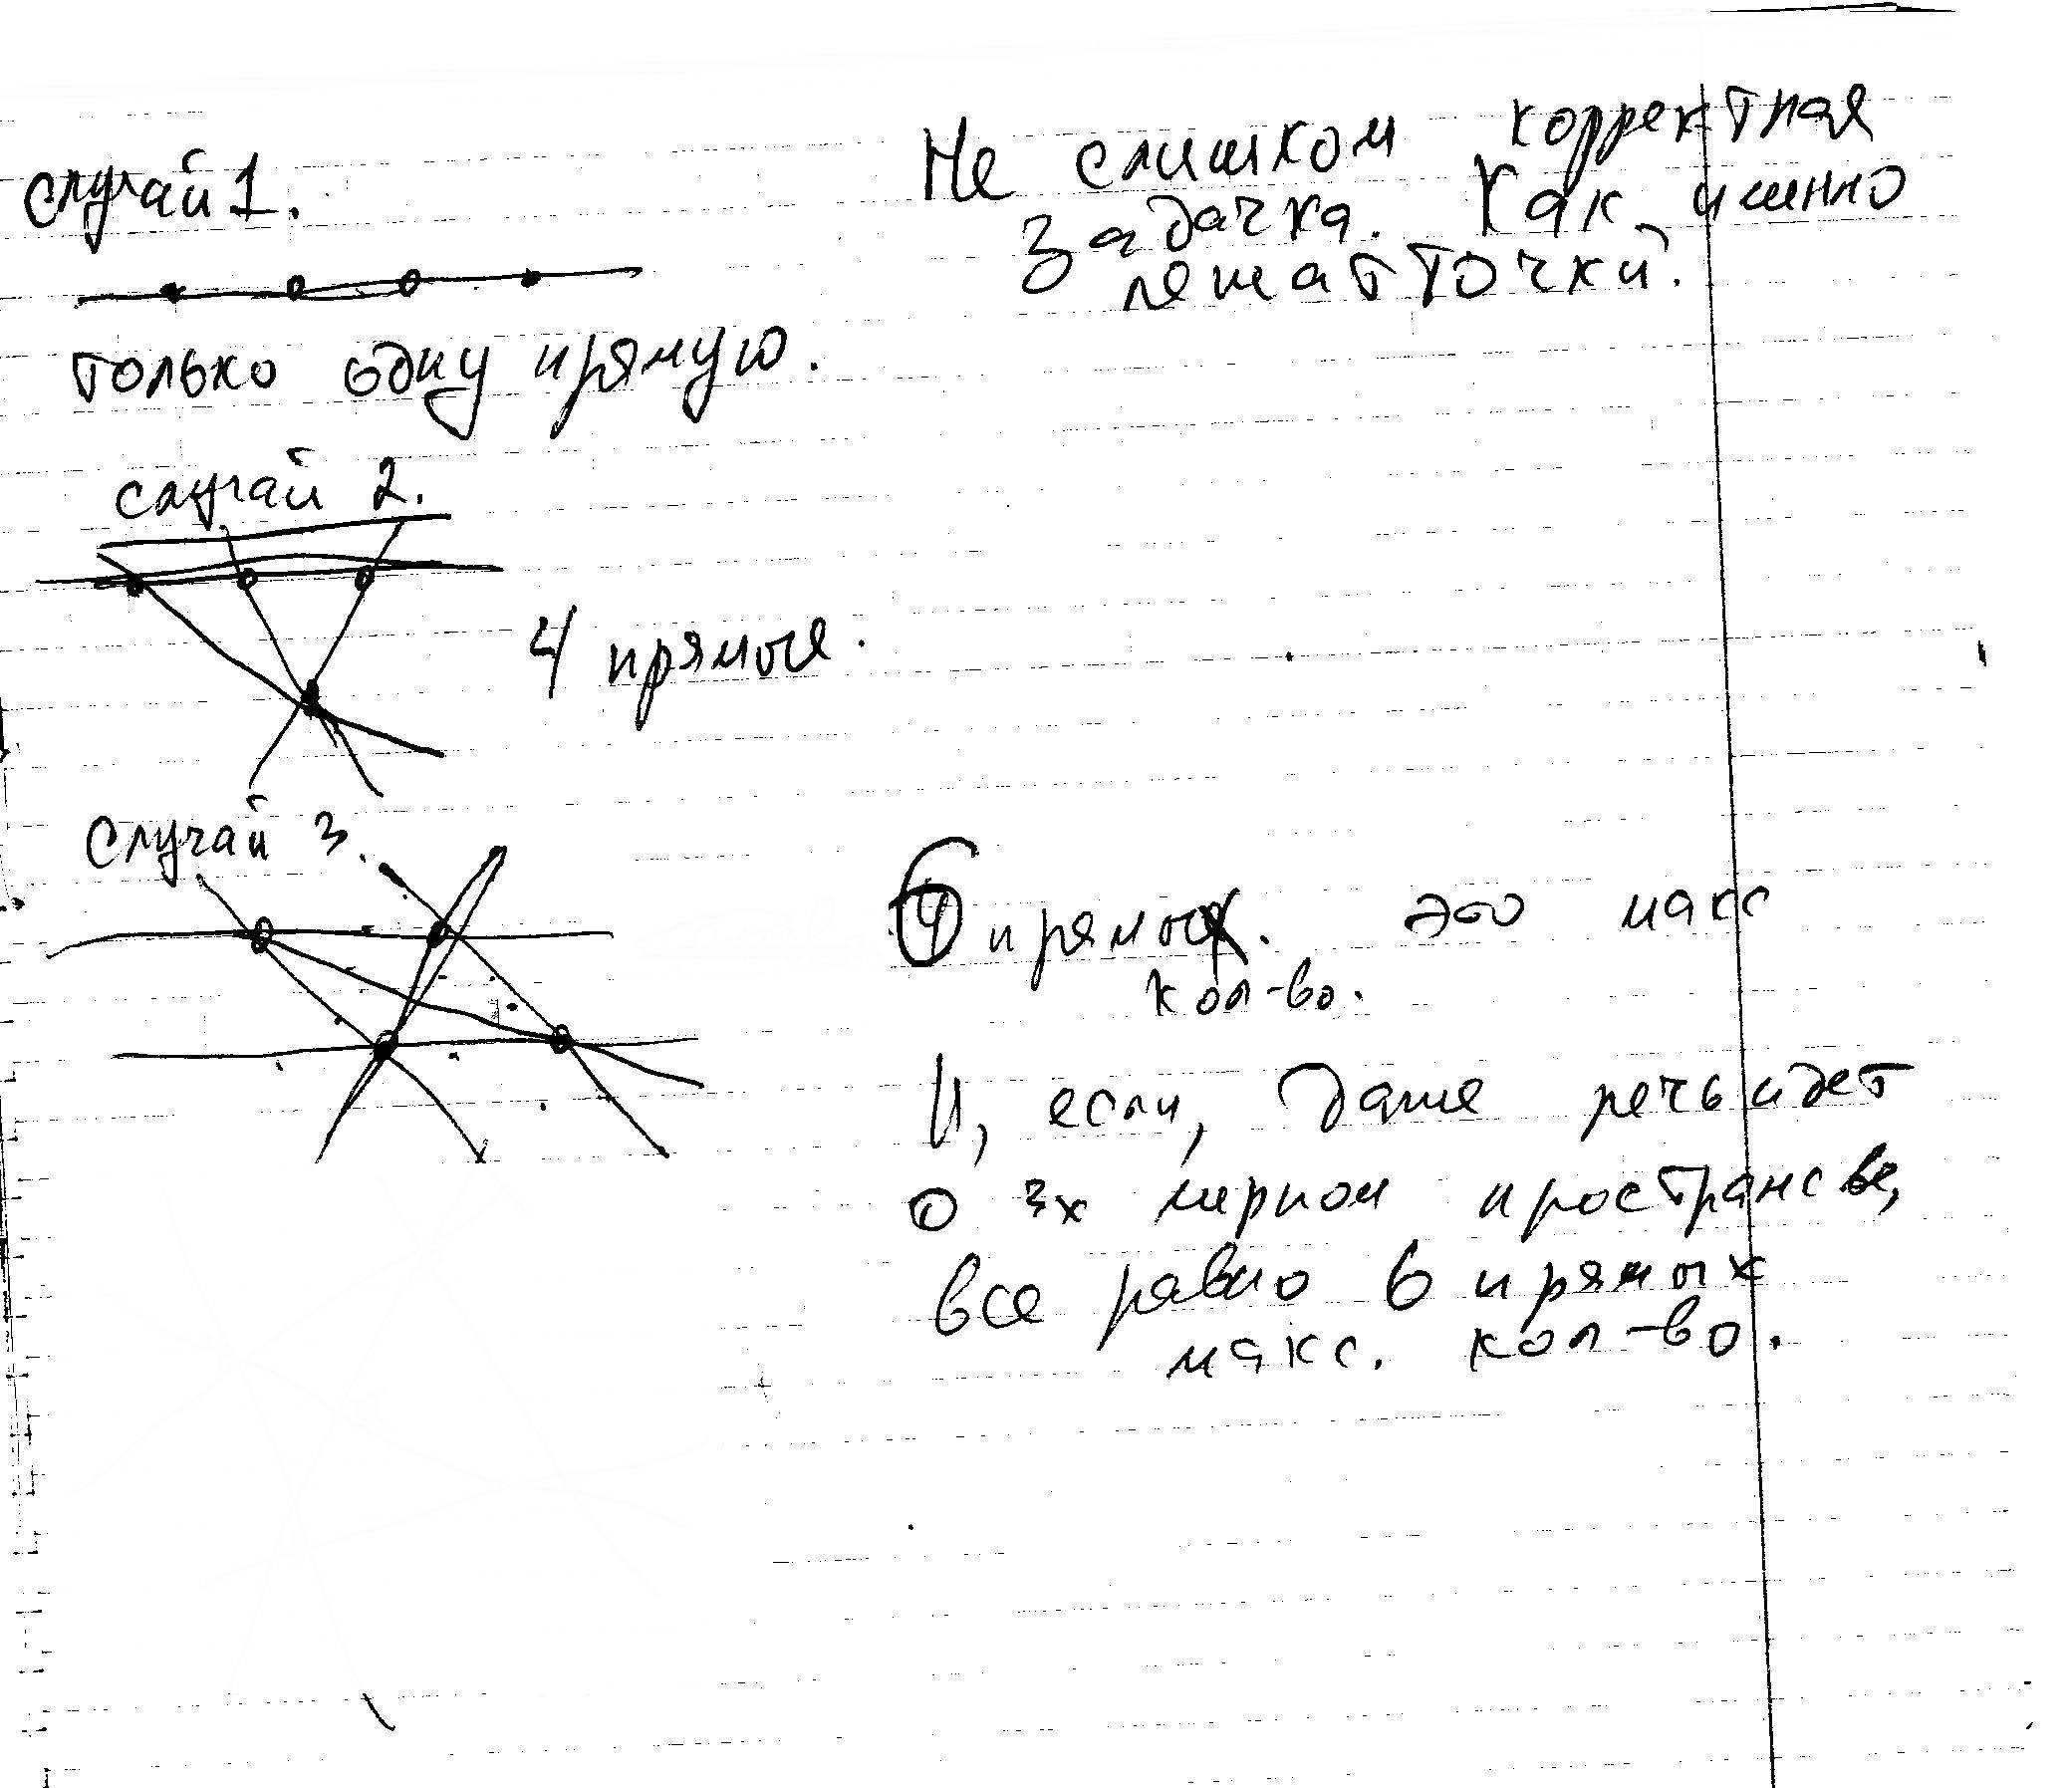 Случай 1.
Не слишком корректная
задачка. Как именно
лежат точки.
только одну прямую.
Случай 2.
4 прямые.
Случай 3.
6 прямых. это макс
кол-во.
И, если, даже речь идет
о 3х мерном пространсве,
все равно 6 прямых
макс. кол-во.